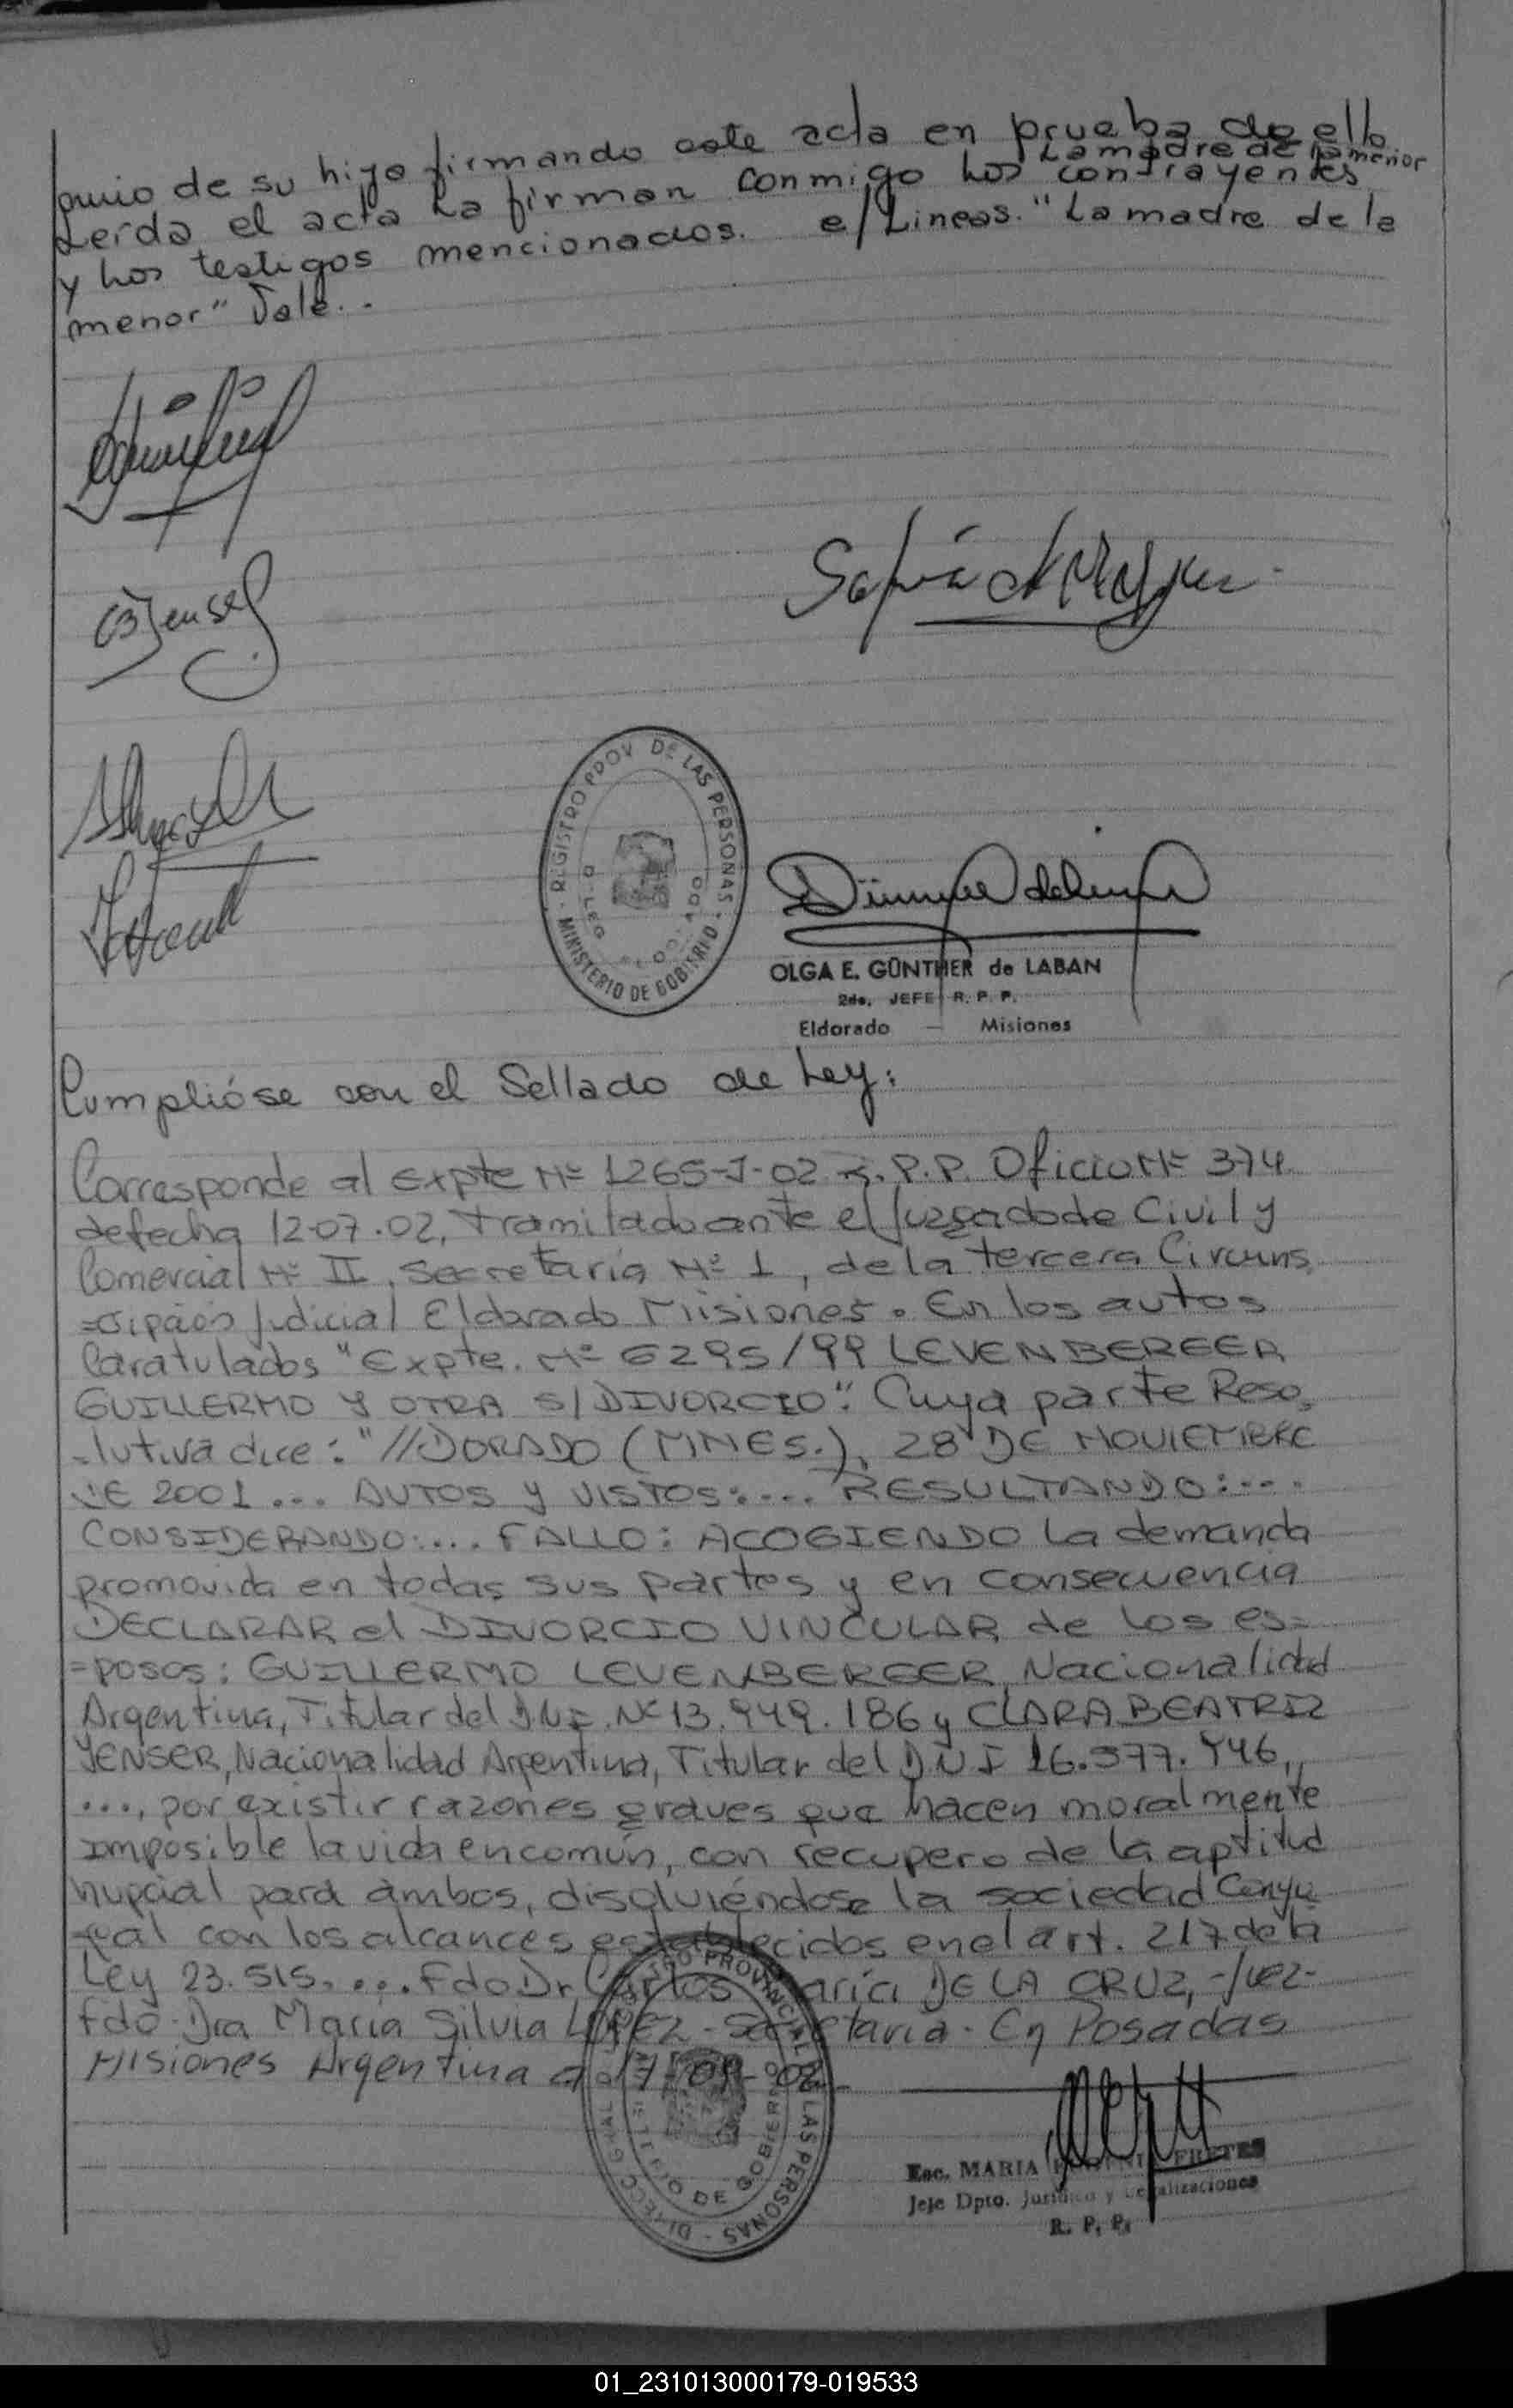 de su hijo firmando este acta en prueba de ello
La madre de la menor
Leída el acta La firman conmigo Los contrayentes
y Los testigos mencionados. e/Lineas. "La madre de la
menor" Vale..
REGISTRO PROV DE LAS PERSONAS - MINISTERIO DE GOBIERNO
OLGA E. GÜNTHER de LABAN
2do. JEFE R. P. P.
Eldorado — Misiones
Cumplióse con el Sellado de Ley:
Corresponde al Expte Nº 1265-J-02 R.P.P. Oficio Nº 374
de fecha 12-07.02, Tramitado ante el Juzgado de Civil y
Comercial Nº II, Secretaría Nº 1, de la tercera Circuns
=cripción Judicial Eldorado Misiones. En los autos
Caratulados "Expte. Nº 6295/99 LEVENBERGER
GUILLERMO Y OTRA S/DIVORCIO". Cuya parte Reso
-lutiva dice: "//DORADO (MNES.), 28 DE NOVIEMBRE
DE 2001... AUTOS Y VISTOS:.... RESULTANDO:...
CONSIDERANDO:.... FALLO: ACOGIENDO la demanda
promovida en todas sus partes y en consecuencia
DECLARAR el DIVORCIO VINCULAR de los es=
=posos: GUILLERMO LEVENBERGER, Nacionalidad
Argentina, Titular del D.N.I. Nº 13.949.186 y CLARA BEATRIZ
JENSER, Nacionalidad Argentina, Titular del D N I 16.377.446,
..., por existir razones graves que hacen moralmente
imposible la vida en común, con recupero de la aptitud
nupcial para ambos, disolviéndose la sociedad Conyu
=gal con los alcances establecidos en el art. 217 de la
Ley 23.515. ... Fdo Dr Carlos María DE LA CRUZ, -Juez-
Fdo. Dra María Silvia LOPEZ - Secretaria. En Posadas
Misiones Argentina a 17-09-02
DIRECC GRAL DEL REGISTRO PROVINCIAL DE LAS PERSONAS
MINISTERIO DE GOBIERNO
Esc. MARIA FRETES
Jefe Dpto. Jurídico y Legalizaciones
R. P. P.
01_231013000179-019533